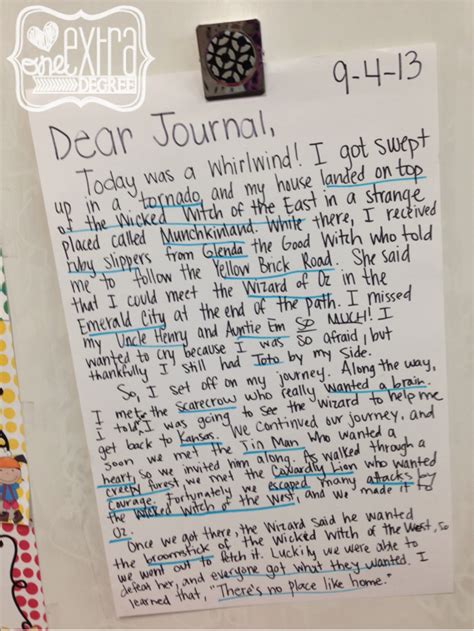 one extra
DEGREE
9-4-13
Dear Journal,
Today was a whirlwind! I got swept
up in a tornado and my house landed on top
of the Wicked Witch of the East in a strange
placed called Munchkinland. While there, I received
ruby slippers from Glenda the Good Witch who told
me to follow the Yellow Brick Road. She said
that I could meet the Wizard of Oz in the
Emerald City at the end of the path. I missed
my Uncle Henry and Auntie Em SO MUCH! I
wanted to cry because I was so afraid, but
thankfully I still had Toto by my side.
So, I set off on my journey. Along the way,
I met the scarecrow who really wanted a brain.
I told I was going to see the Wizard to help me
get back to Kansas. We continued our journey, and
soon we met the Tin Man who wanted a
heart, so we invited him along. As walked through a
creepy forest, we met the Cowardly Lion who wanted
courage. Fortunately we escaped many attacks by
the Wicked Witch of the West, and we made it to
Oz.
Once we got there, the Wizard said he wanted
the broomstick of the Wicked Witch of the West, so
we went out to fetch it. Luckily we were able to
defeat her, and everyone got what they wanted. I
learned that, "There's no place like home."